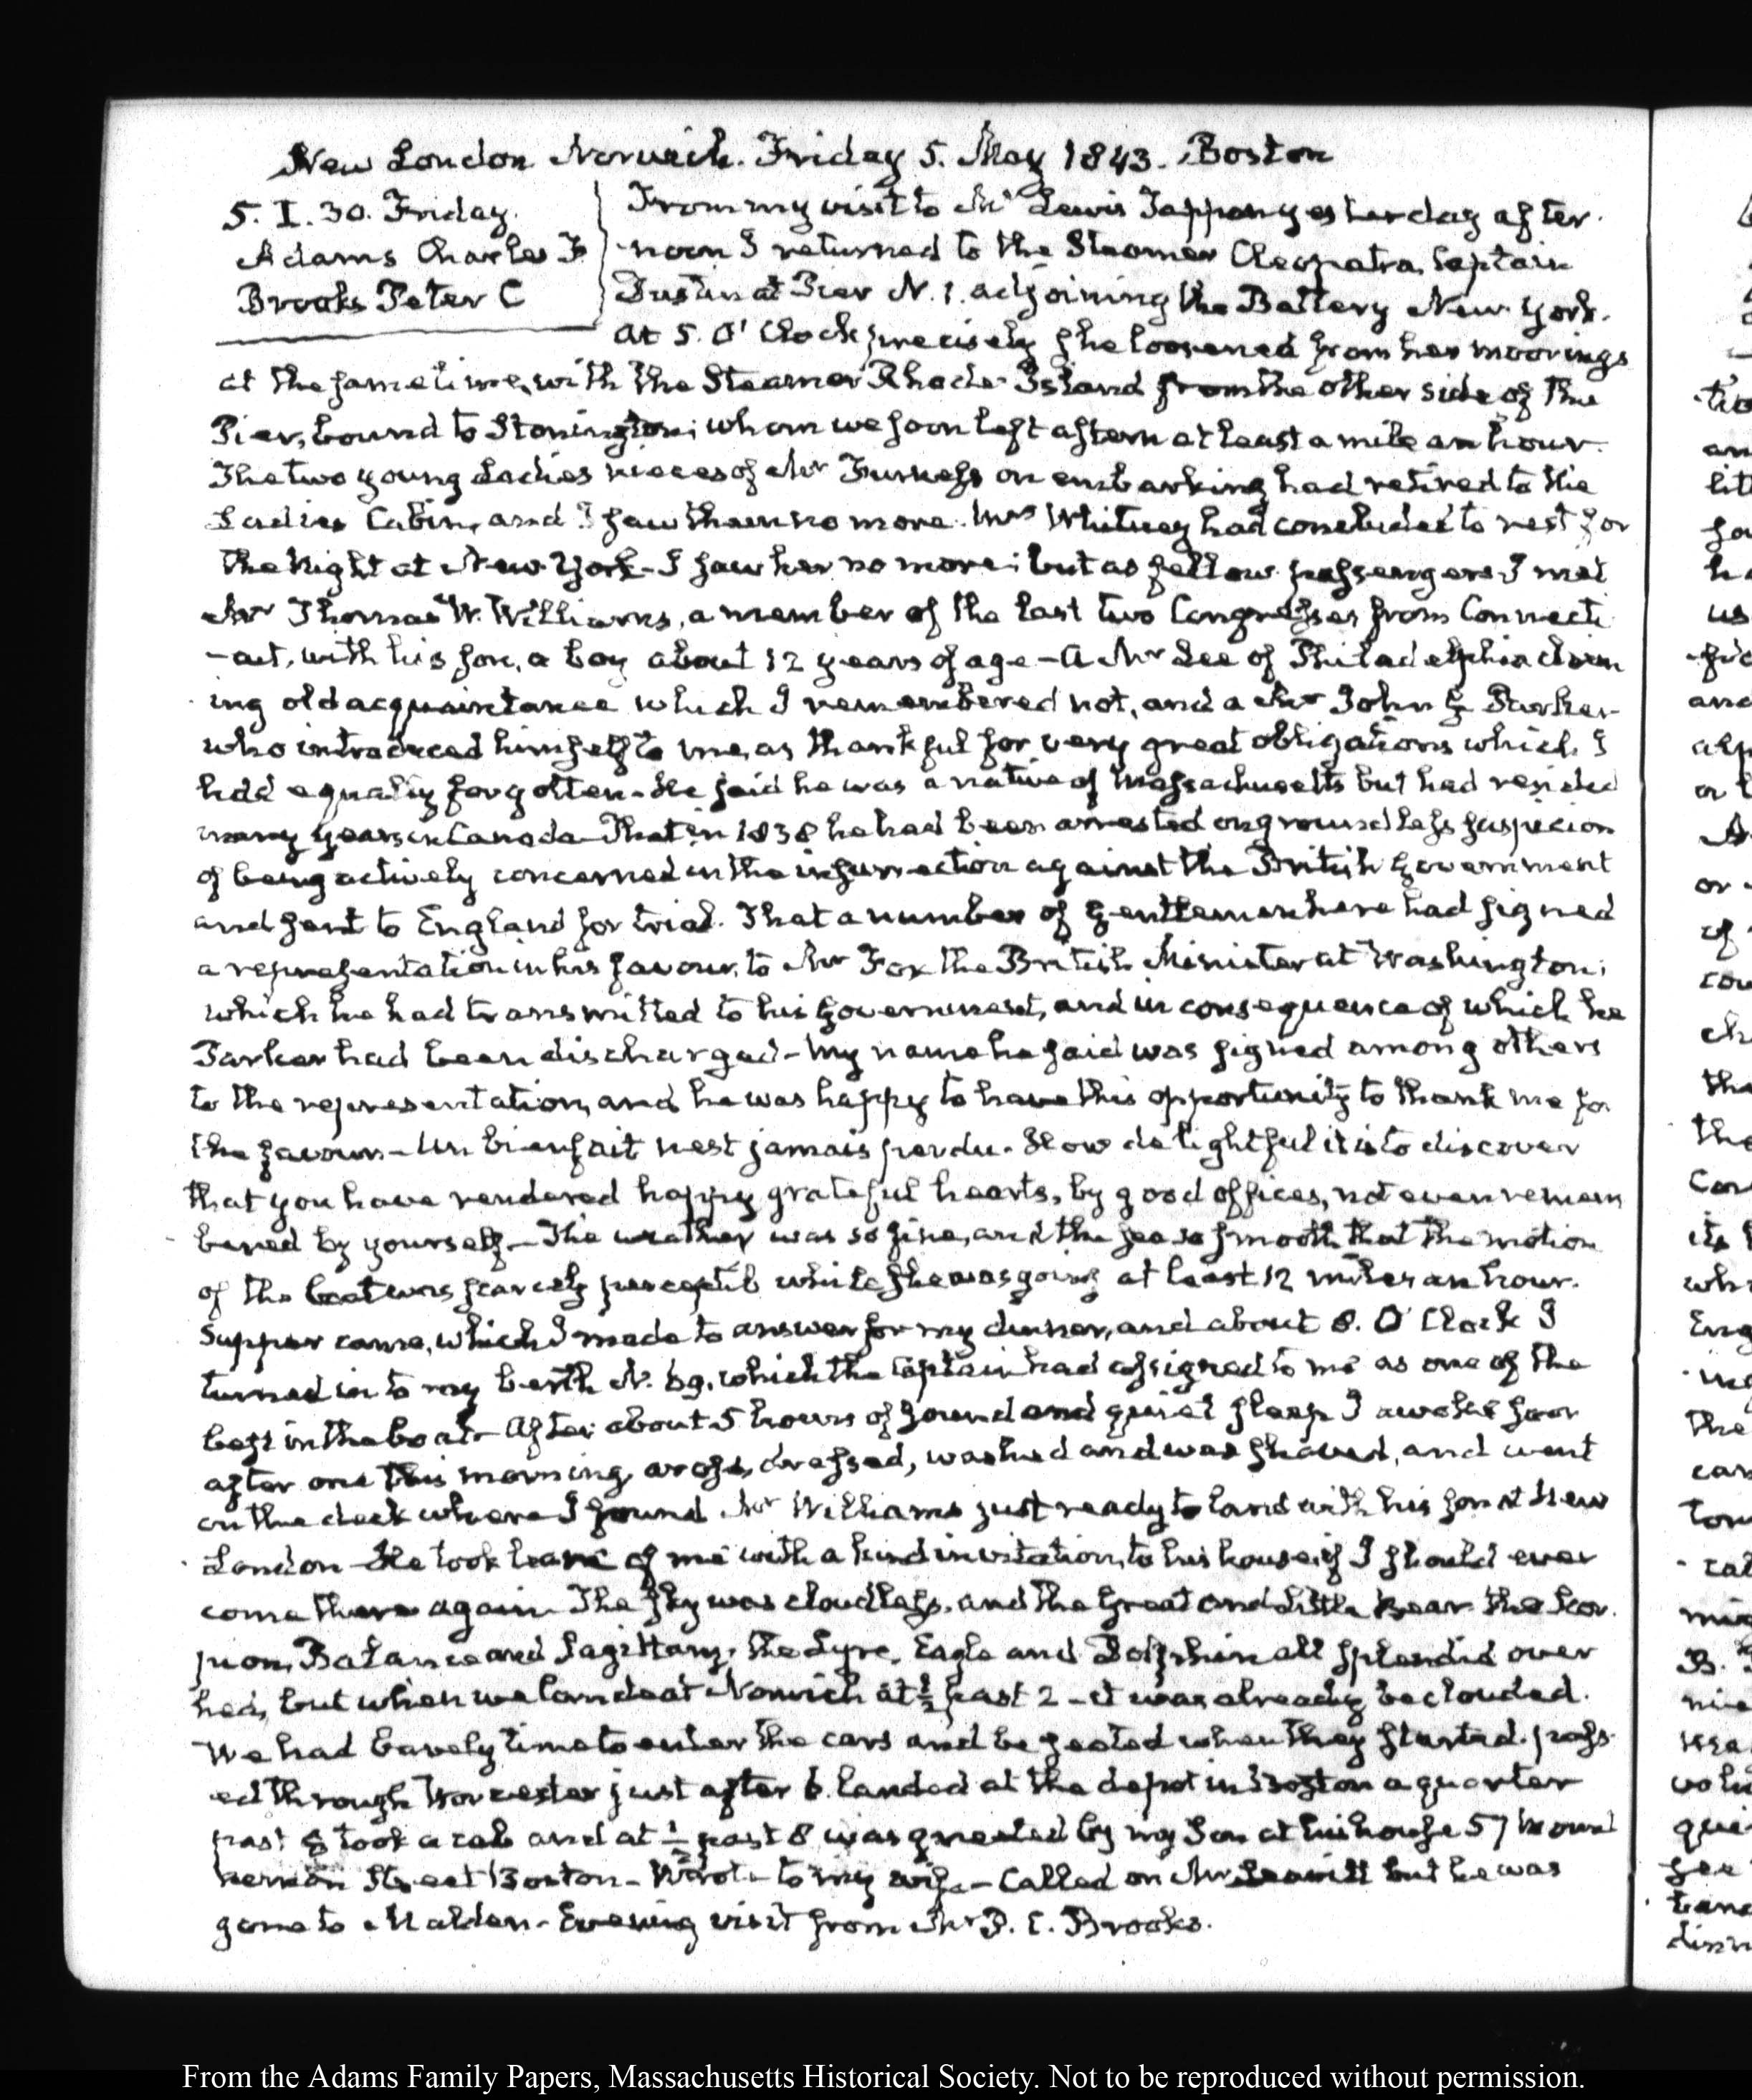 New London Norwich. Friday 5. May 1843. Boston
5. I. 30. Friday.
Adams Charles F
Brooks Peter C
From my visit to Mr Lewis Tappan yesterday after-
noon I returned to the Steamer Cleopatra, Captain
Dustin at Pier N. 1. adjoining the Battery New-York.
At 5. O' Clock precisely she loosened from her moorings
at the same time, with the Steamer Rhode-Island from the other side of the
Pier, bound to Stonington; whom we soon left astern at least a mile an hour.
The two young Ladies nieces of Mr Furness on embarking had retired to the
Ladies Cabin, and I saw them no more. Mrs Whitney had concluded to rest for
the Night at New-York—I saw her no more; but as fellow-passengers I met
Mr Thomas W. Williams, a member of the last two Congresses from Connecti-
-cut, with his son, a boy about 12 years of age—A Mr Lee of Philadelphia claim
ing old acquaintance which I remembered not, and a Mr John G Parker
who introduced himself to me, as thankful for very great obligations which I
had equally forgotten—He said he was a native of Massachusetts but had resided
many years in Canada—That in 1838 he had been arrested on groundless suspicion
of being actively concerned in the insurrection against the British Government
and sent to England for trial. That a number of Gentlemen here had signed
a representation in his favour, to Mr Fox the British Minister at Washington;
which he had transmitted to his Government, and in consequence of which he
Parker had been discharged—My name he said was signed among others
to the representation, and he was happy to have this opportunity to thank me for
the favour—Un bienfait n'est jamais perdu. How delightful it is to discover
that you have rendered happy grateful hearts, by good offices, not even remem
bered by yourself—The weather was so fine, and the sea so smooth that the motion
of the boat was scarcely perceptib while she was going at least 12 miles an hour.
Supper came, which I made to answer for my dinner, and about 8. O' Clock I
turned in to my berth N. 69. which the Captain had assigned to me as one of the
best in the boat—After about 5 hours of sound and quiet sleep I awoke soon
after one this morning, arose, dressed, washed and was shaved, and went
on the deck where I found Mr Williams just ready to land with his son at New
London—He took leave of me with a kind invitation, to his house, if I should ever
come there again. The sky was cloudless, and the Great and Little Bear the Scor
pion, Balance and Sagittary, the Lyre, Eagle and Dolphin all splendid over
hed, but when we landed at Norwich at ½ past 2—it was already beclouded.
We had barely time to enter the cars and be seated when they started. pass-
ed through Worcester just after 6. landed at the depot in Boston a quarter
past 8 took a cab and at ½ past 8 was greeted by my Son at his house 57 Mount
Vernon Street Boston—Wrote to my wife—Called on Mr Leavitt but he was
gone to Malden—Evening visit from Mr P. C. Brooks.
From the Adams Family Papers, Massachusetts Historical Society. Not to be reproduced without permission.